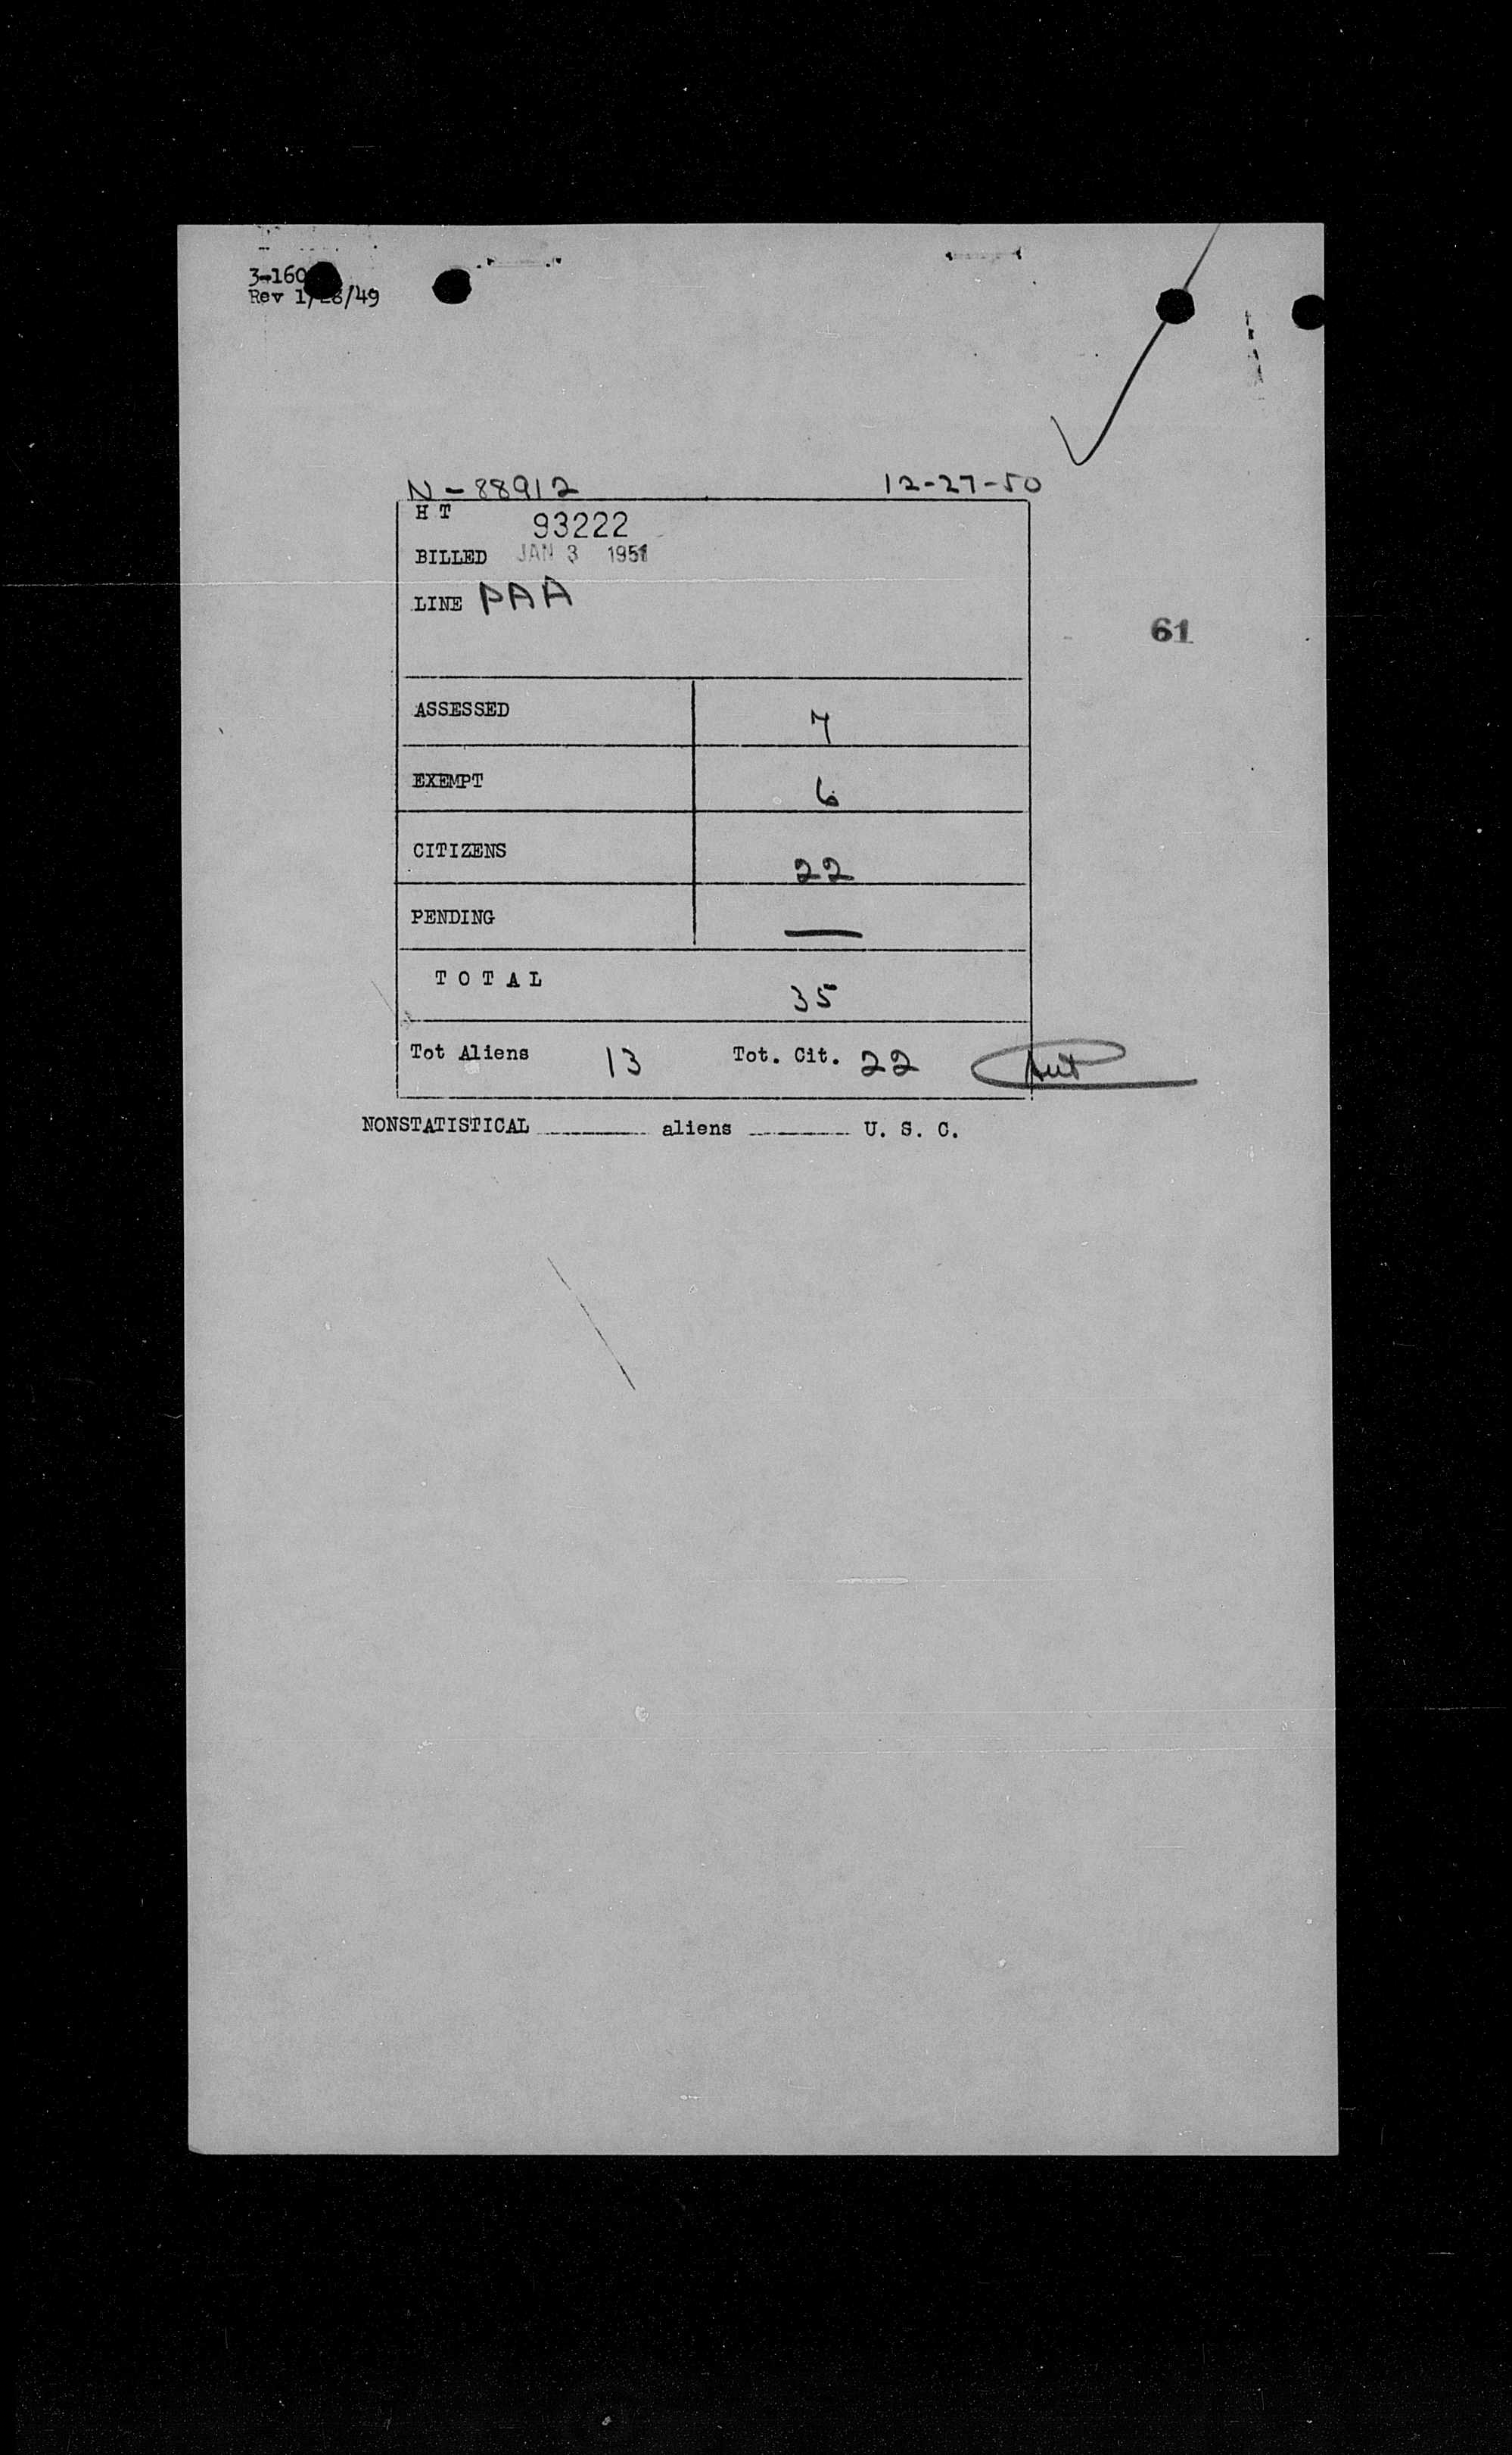 3-160
Rev 1/26/49
N-88912 12-27-50
H T 93222
BILLED JAN 3 1951
LINE PAA
61
ASSESSED 7
EXEMPT 6
CITIZENS 22
PENDING —
T O T A L 35
Tot Aliens 13 Tot. Cit. 22
NONSTATISTICAL ______ aliens ______ U. S. C.